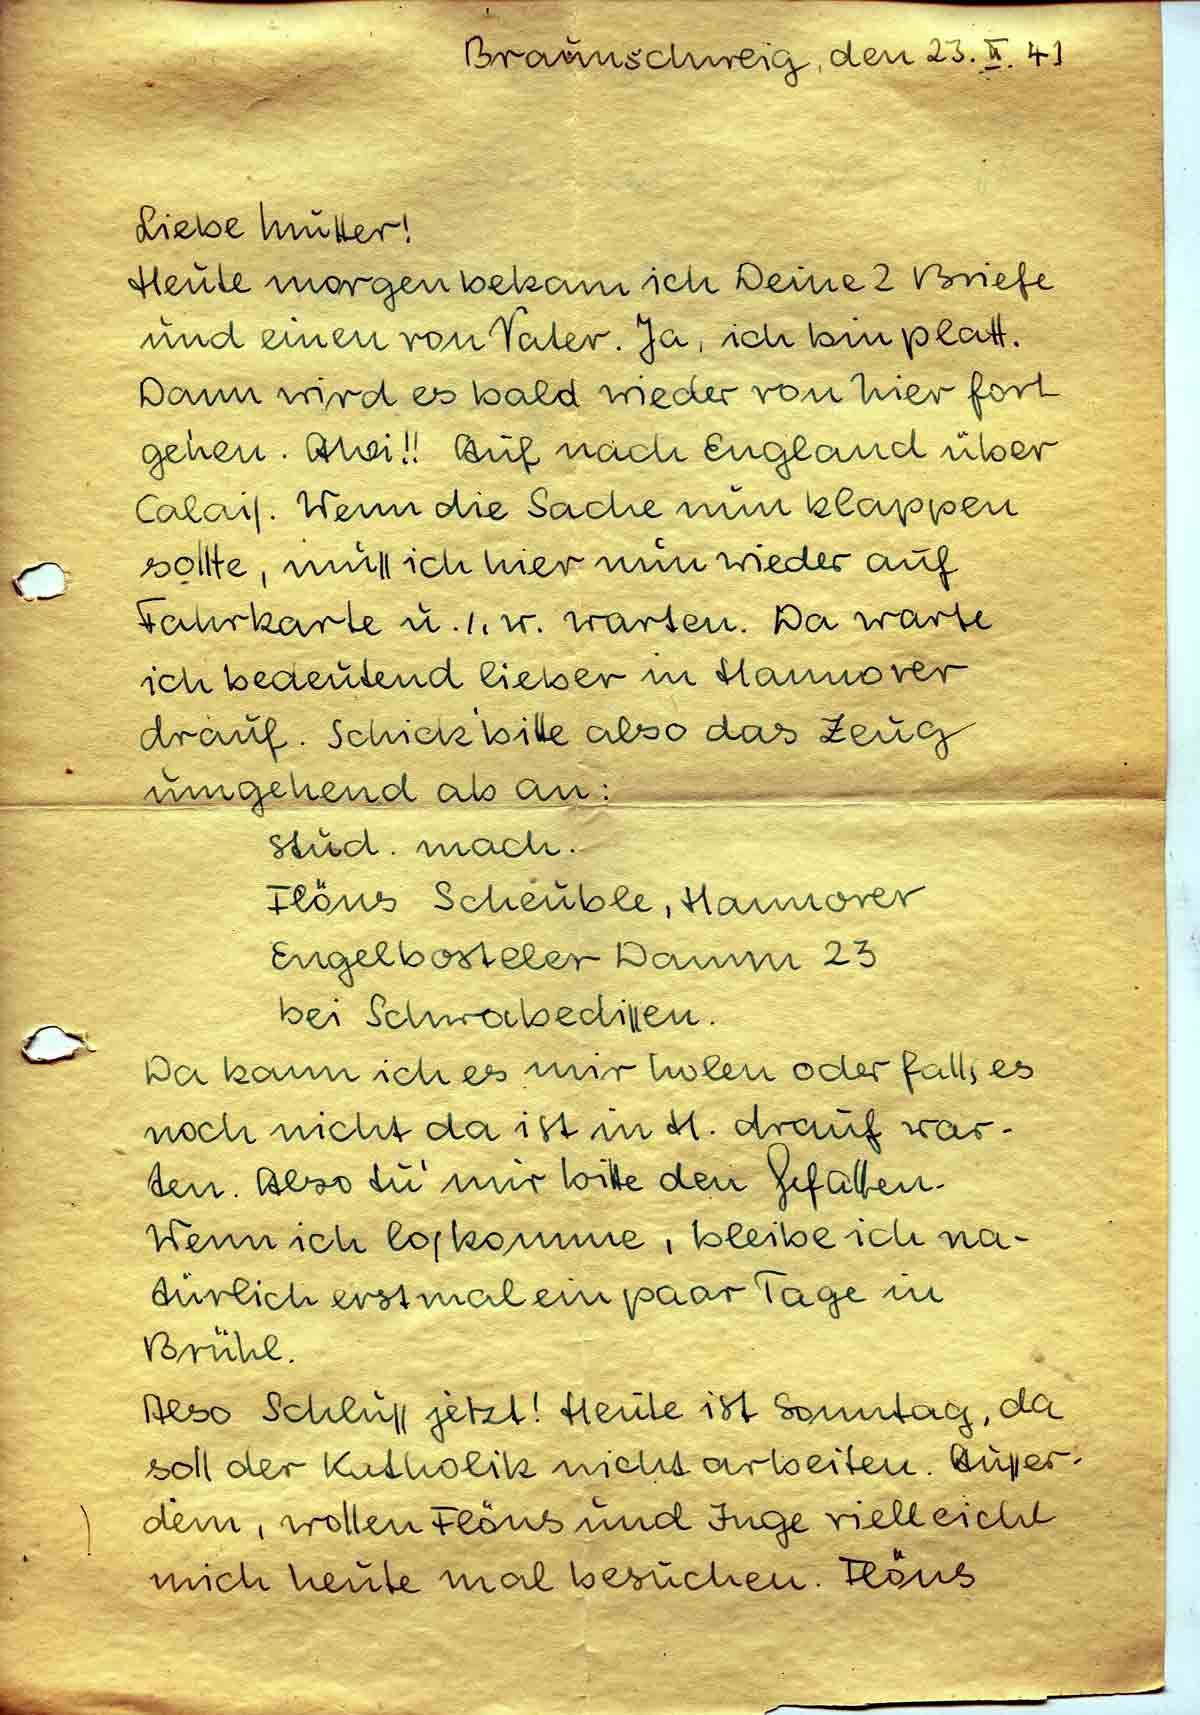 Braunschweig, den 23. II. 41
Liebe Mutter!
Heute morgen bekam ich Deine 2 Briefe
und einen von Vater. Ja, ich bin platt.
Dann wird es bald wieder von hier fort
gehen. Ahoi!! Auf nach England über
Calais. Wenn die Sache nun klappen
sollte, muss ich hier nun wieder auf
Fahrkarte u. s. w. warten. Da warte
ich bedeutend lieber in Hannover
drauf. Schick' bitte also das Zeug
umgehend ab an:
stud. mach.
Flöns Scheuble, Hannover
Engelbosteler Damm 23
bei Schwabedissen.
Da kann ich es mir holen oder falls es
noch nicht da ist in H. drauf war-
ten. Also tu' mir bitte den Gefallen.
Wenn ich loskomme, bleibe ich na-
türlich erstmal ein paar Tage in
Brühl.
Also Schluss jetzt! Heute ist Sonntag, da
soll der Katholik nicht arbeiten. Ausser-
dem, wollen Flöns und Inge vielleicht
mich heute mal besuchen. Flöns